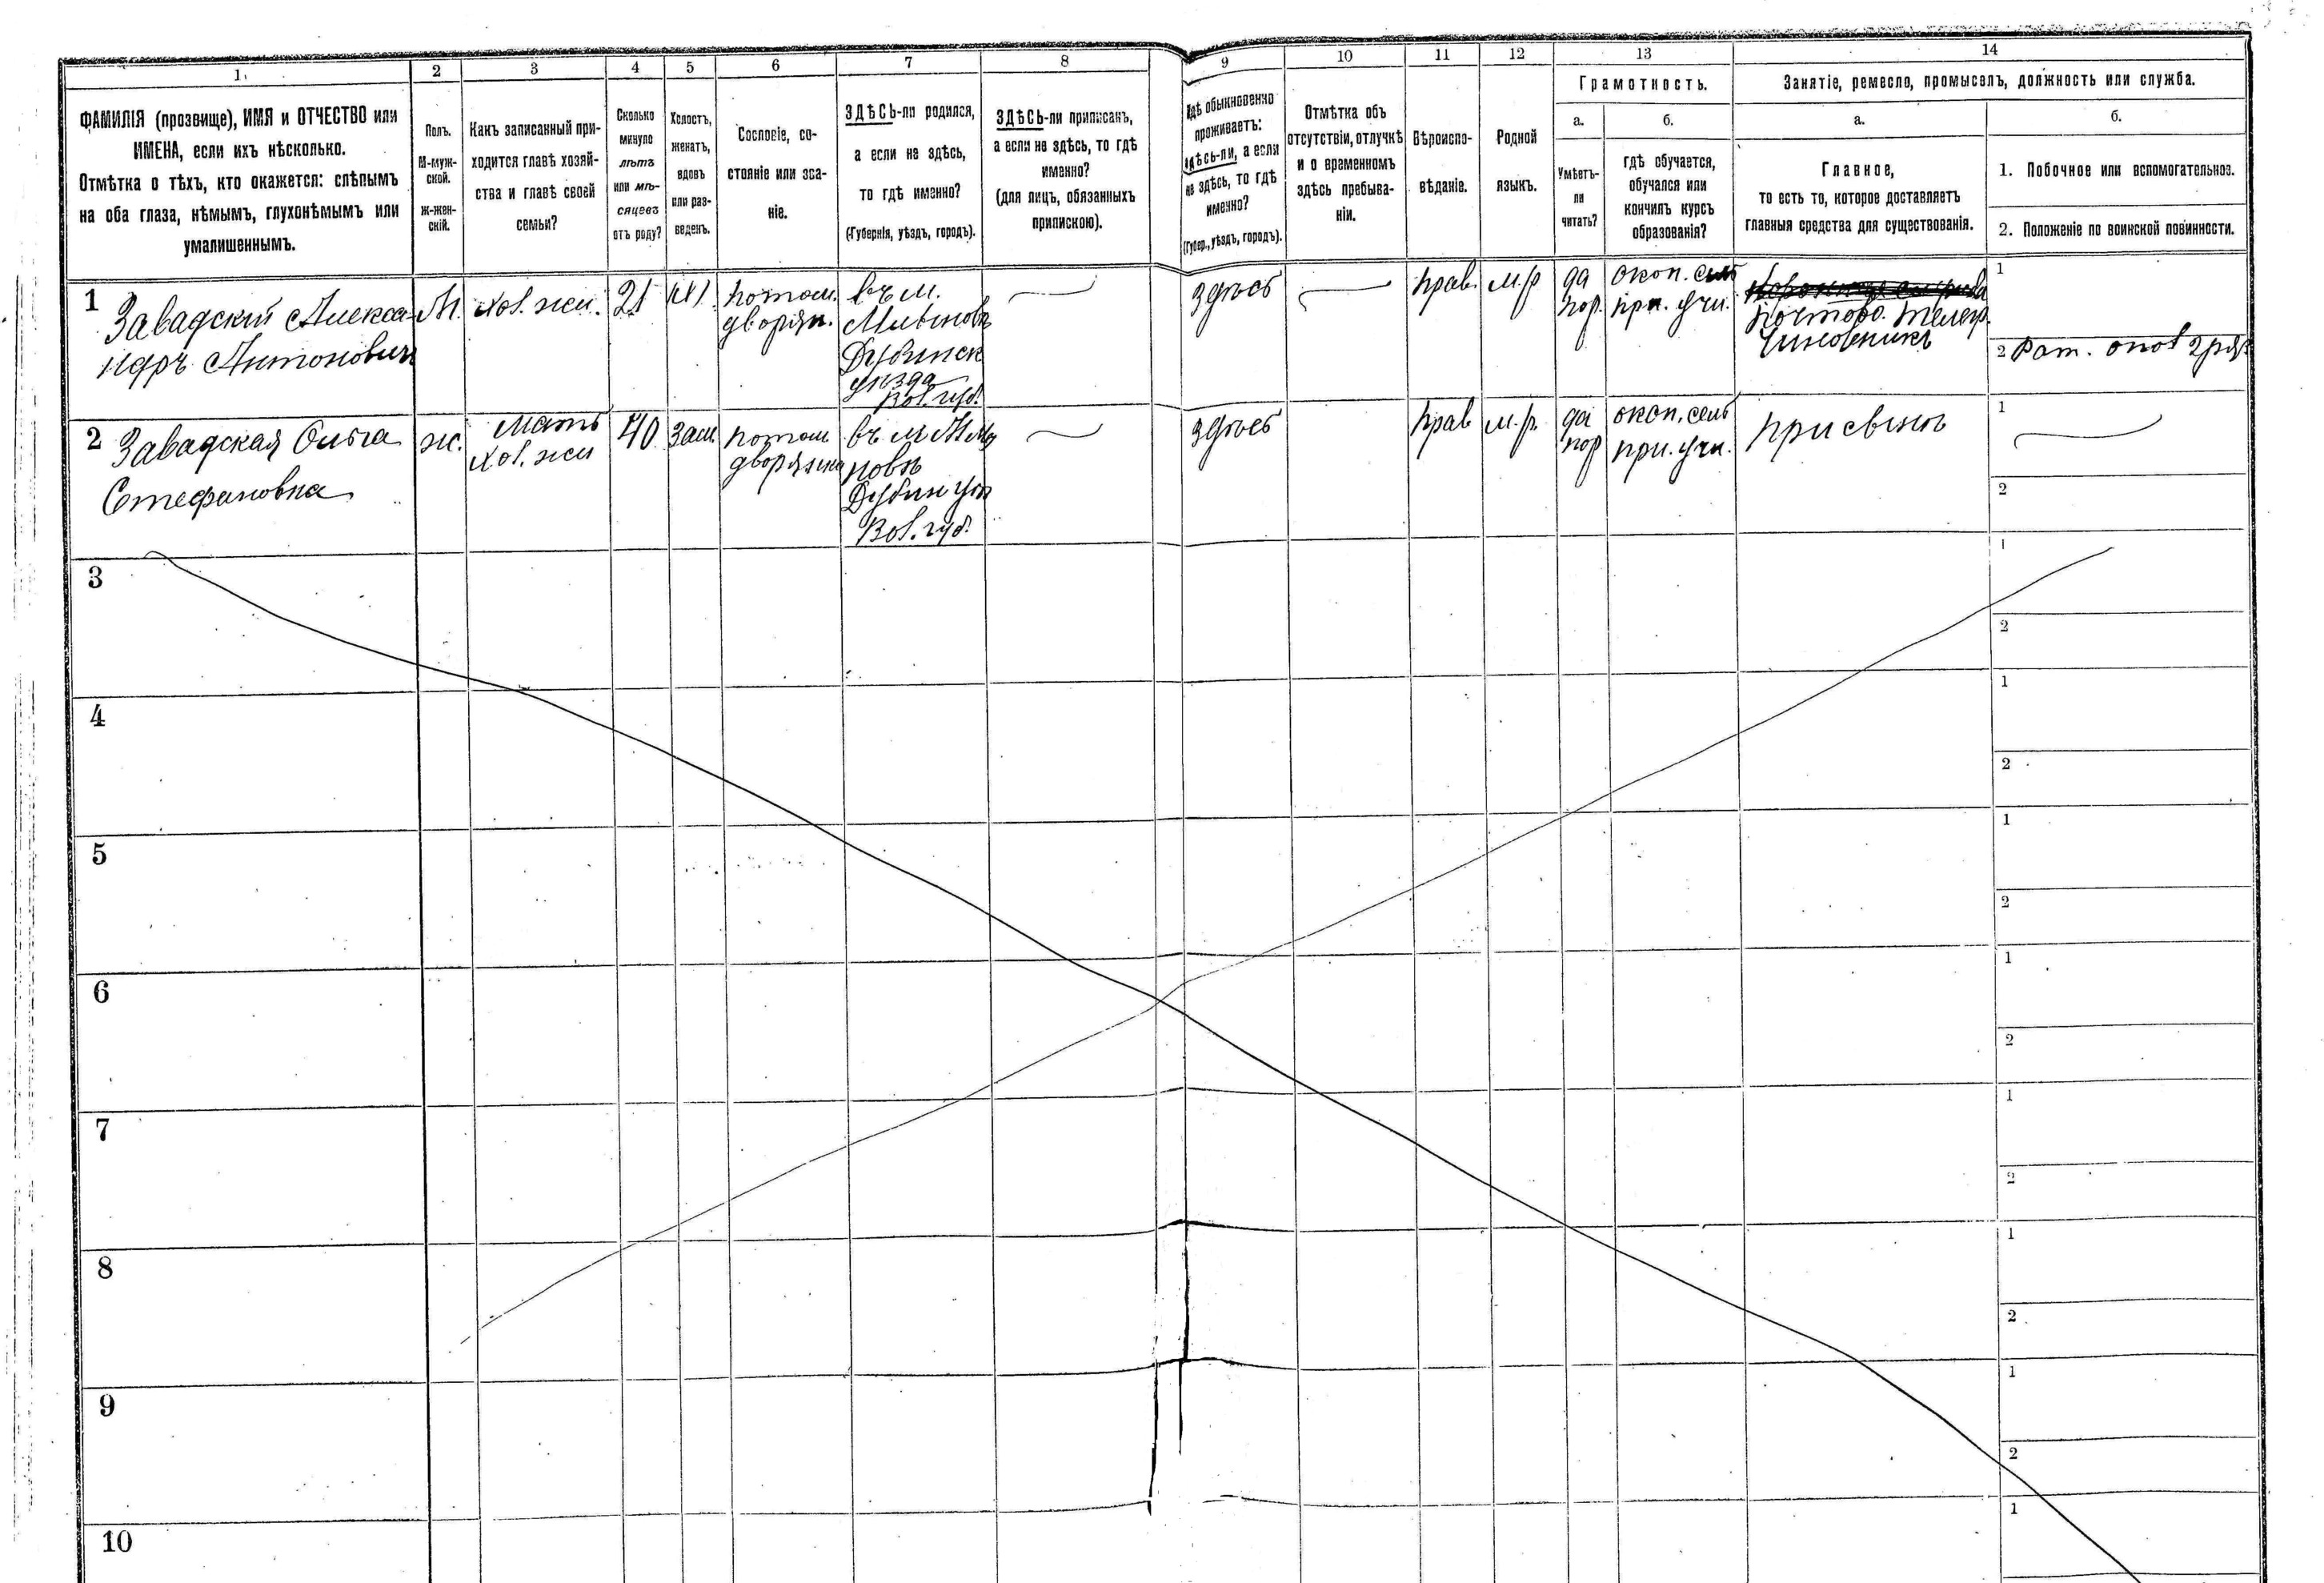 1.
2
3
4
5
6
7
8
9
10
11
12
13
14
ФАМИЛІЯ (прозвище), ИМЯ и ОТЧЕСТВО или
ИМЕНА, если ихъ нѣсколько.
Отмѣтка о тѣхъ, кто окажется: слѣпымъ
на оба глаза, нѣмымъ, глухонѣмымъ или
умалишеннымъ.
Полъ.
М-муж-
ской.
Ж-жен-
скій.
Какъ записанный при-
ходится главѣ хозяй-
ства и главѣ своей
семьи?
Сколько
минуло
лѣтъ
или мѣ-
сяцевъ
отъ роду?
Холостъ,
женатъ,
вдовъ
или раз-
веденъ.
Сословіе, со-
стояніе или зва-
ніе.
ЗДѢСЬ-ли родился,
а если не здѣсь,
то гдѣ именно?
(Губернія, уѣздъ, городъ).
ЗДѢСЬ-ли приписанъ,
а если не здѣсь, то гдѣ
именно?
(для лицъ, обязанныхъ
припискою).
Гдѣ обыкновенно
проживаетъ:
здѣсь-ли, а если
не здѣсь, то гдѣ
именно?
(Губер., уѣздъ, городъ).
Отмѣтка объ
отсутствіи, отлучкѣ
и о временномъ
здѣсь пребыва-
ніи.
Вѣроиспо-
вѣданіе.
Родной
языкъ.
Грамотность.
а.
Умѣетъ-
ли
читать?
б.
гдѣ обучается,
обучался или
кончилъ курсъ
образованія?
Занятіе, ремесло, промыселъ, должность или служба.
а.
Главное,
то есть то, которое доставляетъ
главныя средства для существованія.
б.
1. Побочное или вспомогательное.
2. Положеніе по воинской повинности.
1
Завадскій Алекса-
ндръ Антоновичъ
М.
21
потом.
дворян.
въ м.
Млыновѣ
Дубенск
уѣзда
Вол. губ.
здѣсь
прав.
м.р
да
окон. сель
при. учи.
Почтово. телегр.
Чиновникъ
1
2 Рат. опол 2 раз
2
Завадская Ольга
Стефановна
ж.
Мать
40
зам.
потом
дворянка
въ м Млы
новѣ
Дубен уѣз
Вол. губ.
здѣсь
прав
м.р.
да
окон. сель
при. учи.
при сынѣ
1
2
3
1
2
4
1
2
5
1
2
6
1
2
7
1
2
8
1
2
9
1
2
10
1